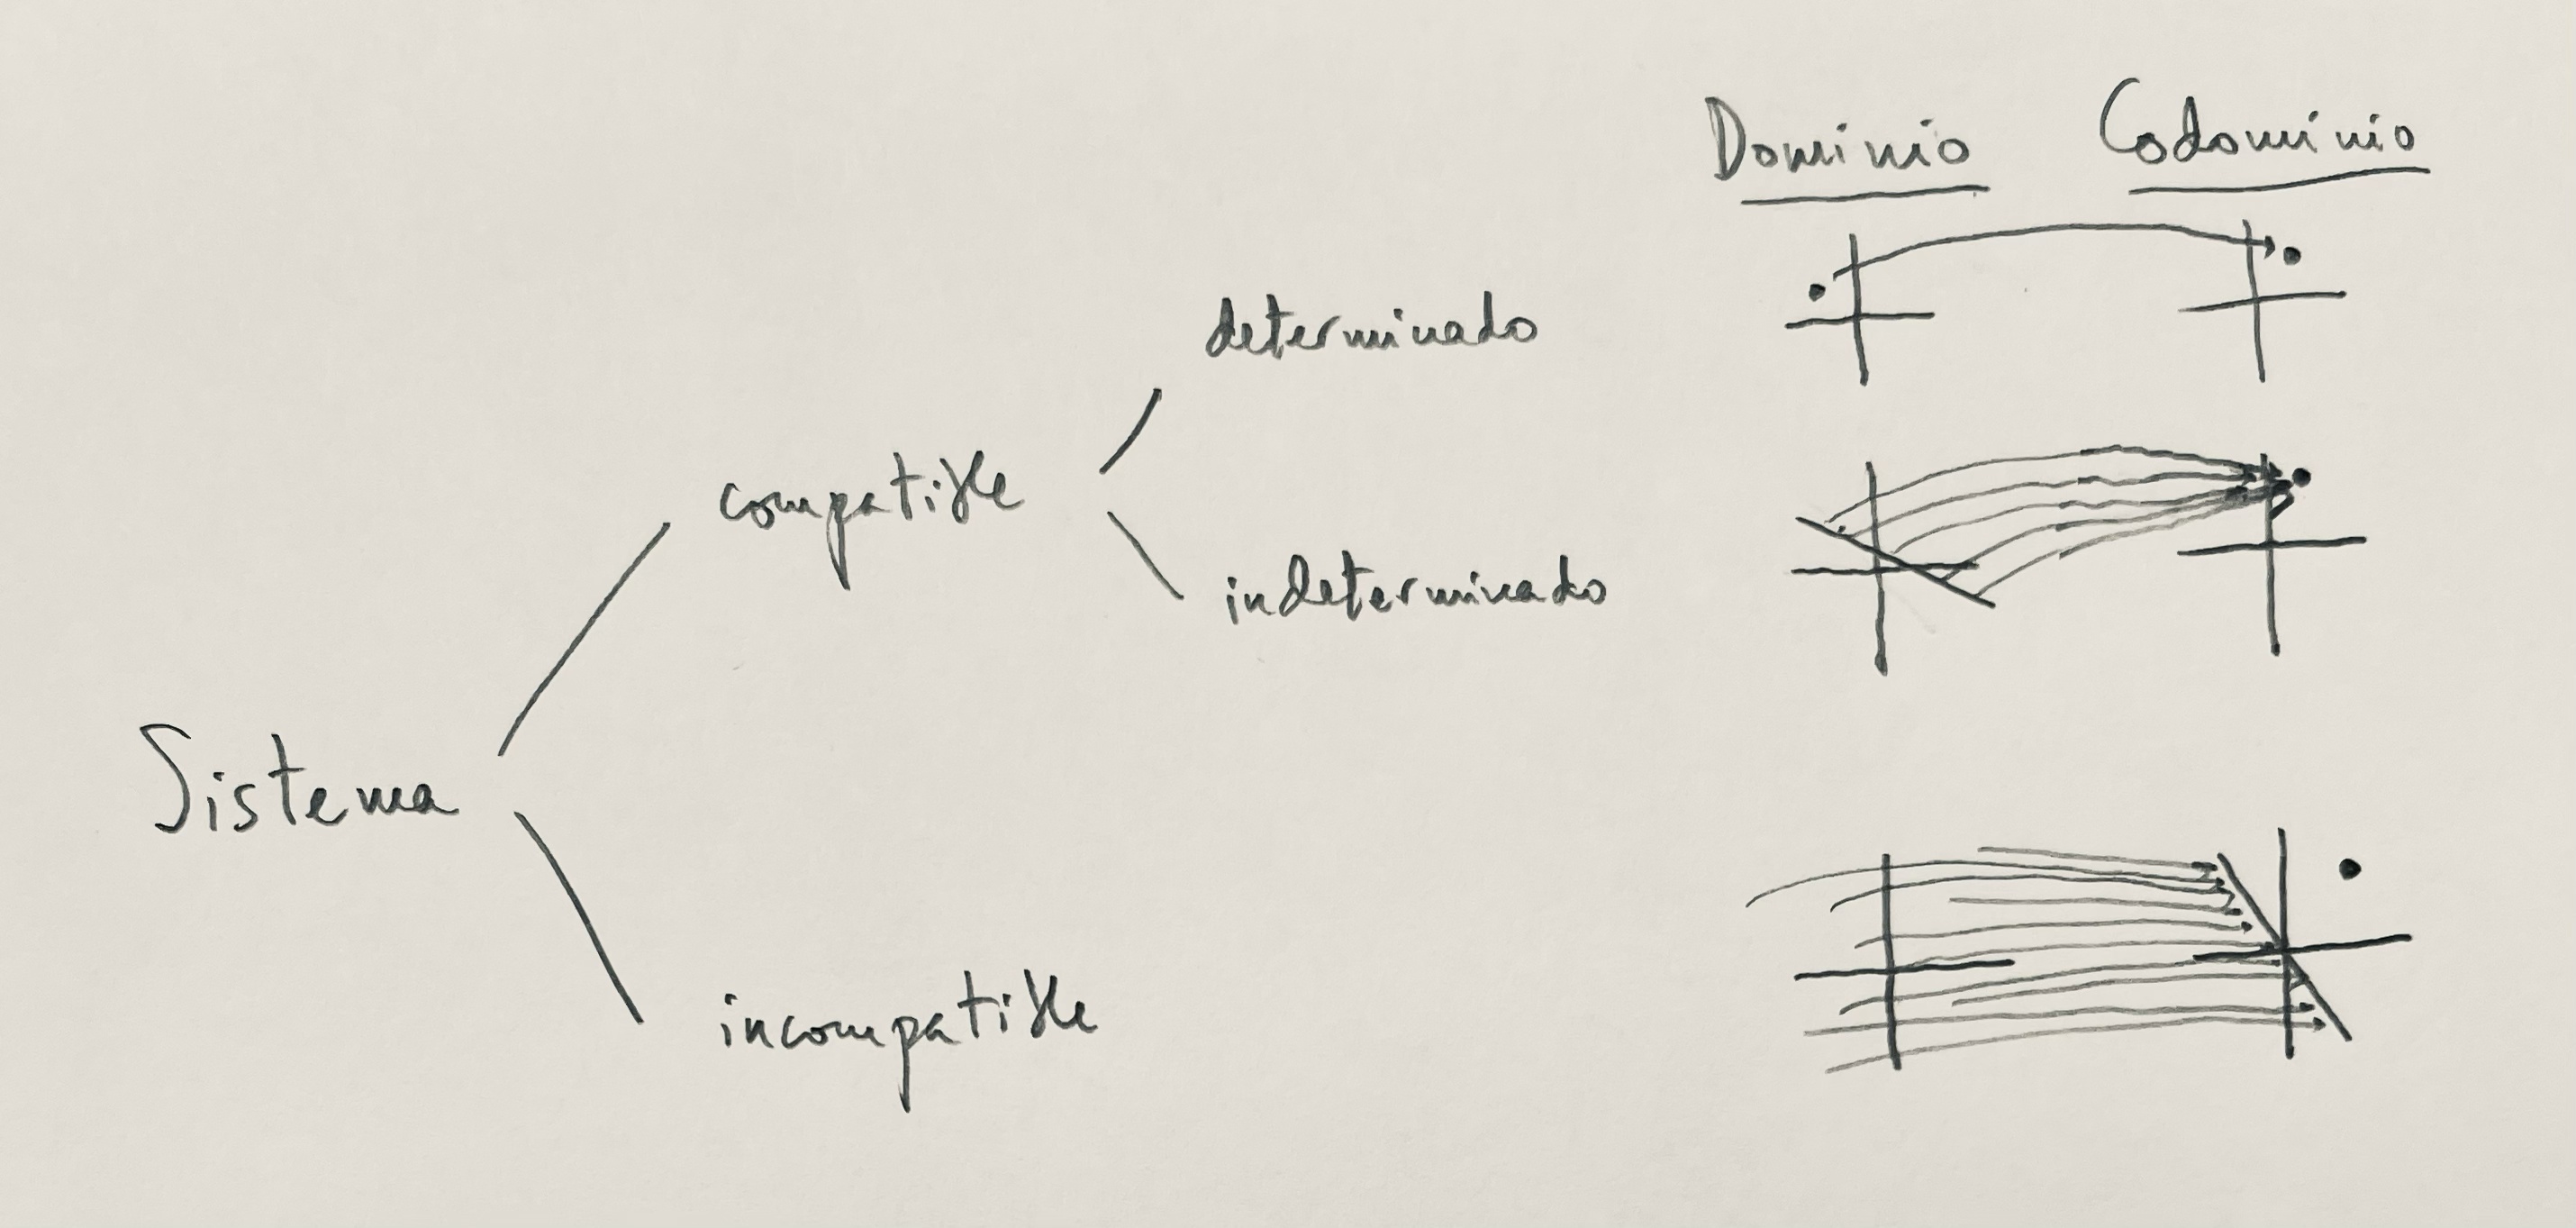 Dominio Codominio
determinado
compatible
indeterminado
Sistema
incompatible